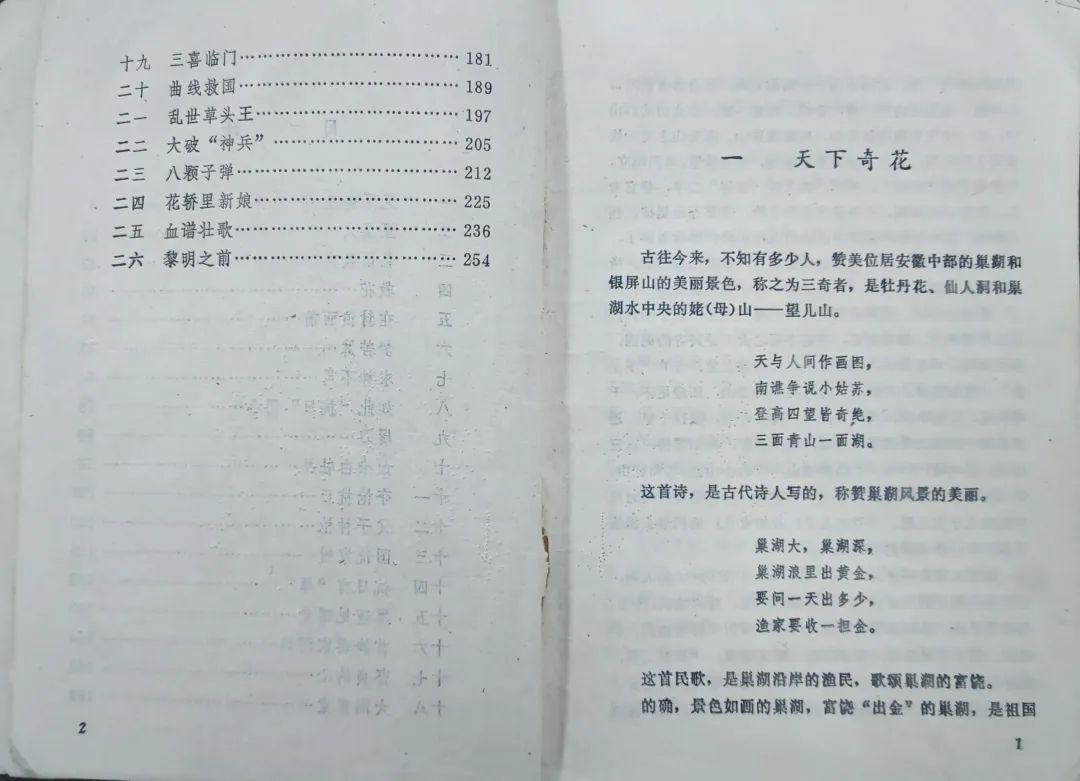 十九　三喜临门……………………………181
二十　曲线救国……………………………189
二一　乱世草头王…………………………197
二二　大破“神兵”…………………………205
二三　八颗子弹……………………………212
二四　花轿里新娘…………………………225
二五　血谱壮歌……………………………236
二六　黎明之前……………………………254
2
一　天下奇花
古往今来，不知有多少人，赞美位居安徽中部的巢湖和
银屏山的美丽景色，称之为三奇者，是牡丹花、仙人洞和巢
湖水中央的姥(母)山——望儿山。
天与人间作画图，
南谯争说小姑苏，
登高四望皆奇绝，
三面青山一面湖。
这首诗，是古代诗人写的，称赞巢湖风景的美丽。
巢湖大，巢湖深，
巢湖浪里出黄金，
要问一天出多少，
渔家要收一担金。
这首民歌，是巢湖沿岸的渔民，歌颂巢湖的富饶。
的确，景色如画的巢湖，富饶“出金”的巢湖，是祖国
1